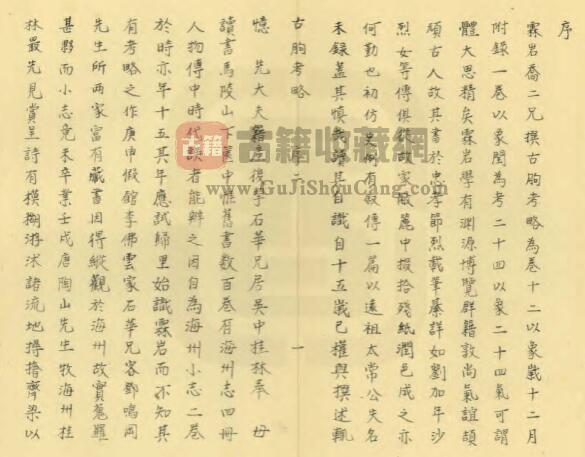 序
霖岩喬二兄撰古朐考略為卷十二以象歲十二月
附錄一卷以象閏為考二十四以象二十四氣可謂
體大思精矣霖岩學有淵源博覽群籍敦尚氣誼頡
頏古人故其書於忠孝節烈載筆綦詳如劉加年沙
烈女等傳俱從故家敝簏中掇拾殘紙潤色成之亦
何勤也初仿史例有敘傳一篇以遠祖太常公失名
未錄蓋其慎也讀其自識自十五歲已權與撰述輒
古朐考略 一
憶 先大夫 後予石華兄居吳中桂林奉 母
讀書馬陵山下篋中惟舊書數百卷有海州志四冊
人物傳中時代誤者能辨之因自為海州小志二卷
於時亦年十五其年應試歸里始識霖岩而不知其
有考略之作庚申假館李佛雲家石華兄客鄧鳴岡
先生所兩家富有藏書因得縱觀於海州故實蒐羅
甚夥而小志竟未卒業壬戌唐陶山先生牧海州桂
林最先見賞呈詩有模糊游泳語流地撏撦齊梁以
古籍收藏网
www.GuJiShouCang.com